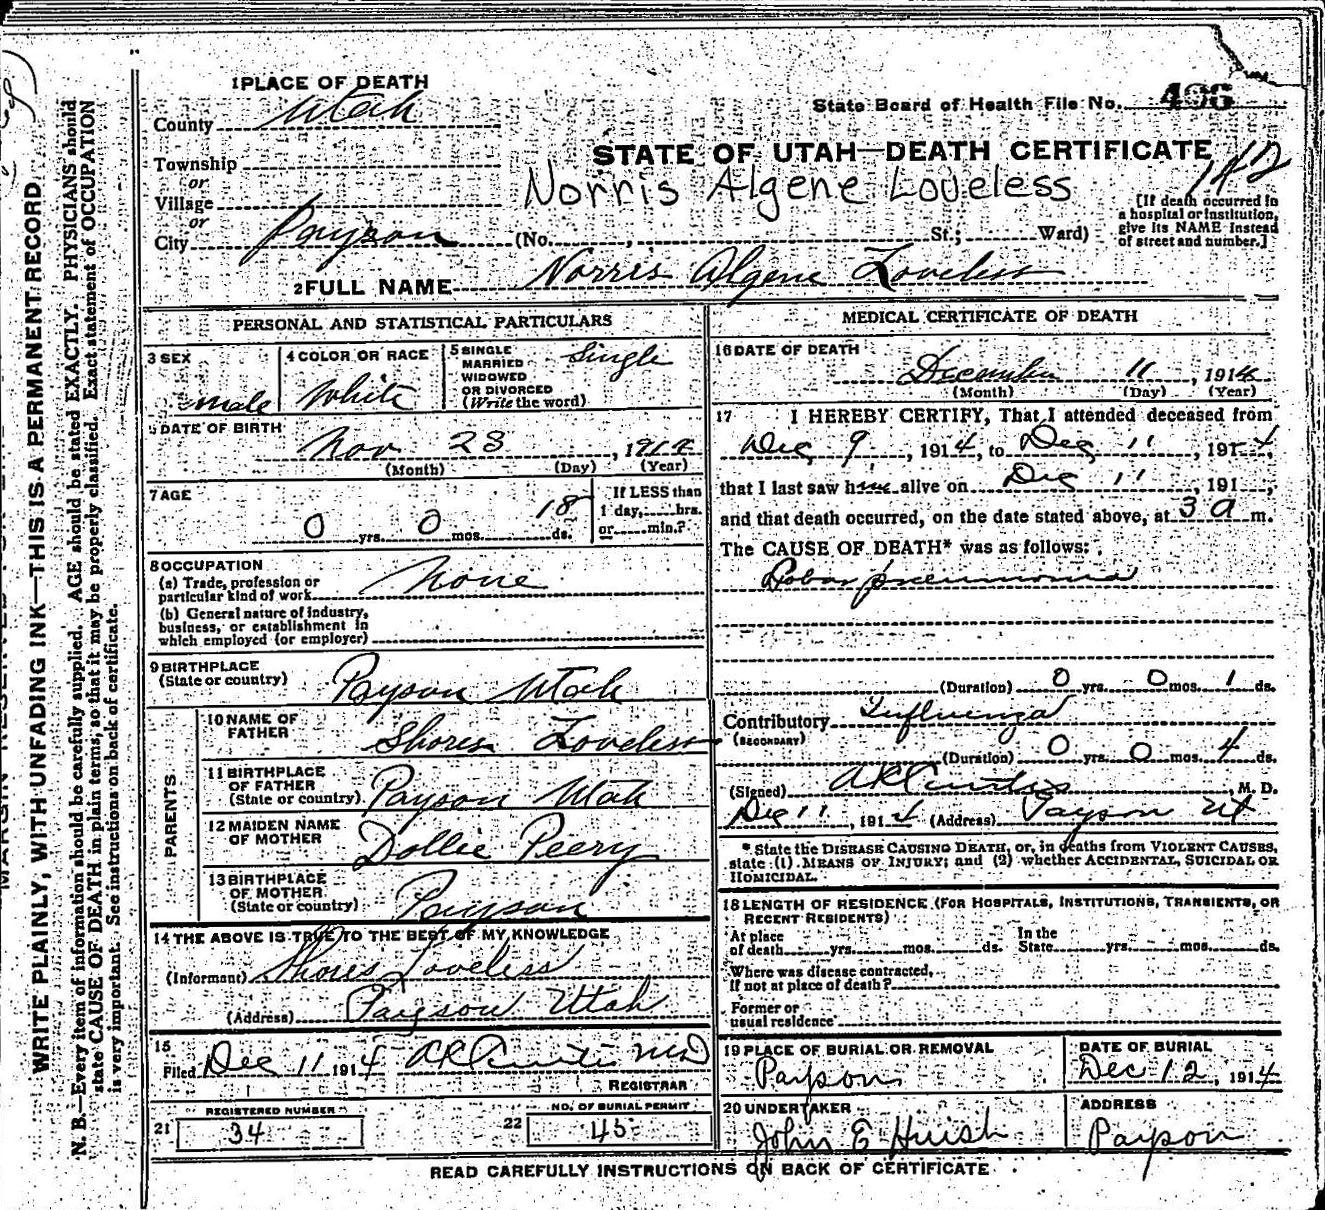 1 PLACE OF DEATH
County Utah
State Board of Health File No. 496
Township
or
Village
or
City Payson (No. , St.; Ward)
STATE OF UTAH—DEATH CERTIFICATE
Norris Algene Loveless
[If death occurred in
a hospital or institution,
give its NAME instead
of street and number.]
2 FULL NAME Norris Algene Loveless
PERSONAL AND STATISTICAL PARTICULARS
3 SEX
male
4 COLOR OR RACE
White
5 SINGLE
MARRIED
WIDOWED
OR DIVORCED
(Write the word)
Single
DATE OF BIRTH
Nov 23, 191
(Month) (Day) (Year)
7 AGE
0 yrs. 0 mos. 18 ds.
If LESS than
1 day, hrs.
or min.?
8 OCCUPATION
(a) Trade, profession or
particular kind of work None
(b) General nature of industry,
business, or establishment in
which employed (or employer)
9 BIRTHPLACE
(State or country) Payson Utah
PARENTS
10 NAME OF
FATHER Shores Loveless
11 BIRTHPLACE
OF FATHER
(State or country) Payson Utah
12 MAIDEN NAME
OF MOTHER Dollie Peery
13 BIRTHPLACE
OF MOTHER
(State or country) Payson
14 THE ABOVE IS TRUE TO THE BEST OF MY KNOWLEDGE
(Informant) Shores Loveless
(Address) Payson Utah
15
Filed Dec 11 1914 AR Curtis MD
REGISTRAR
21 REGISTERED NUMBER
34
22 NO. OF BURIAL PERMIT
45
MEDICAL CERTIFICATE OF DEATH
16 DATE OF DEATH
December 11, 1914
(Month) (Day) (Year)
17 I HEREBY CERTIFY, That I attended deceased from
Dec 9, 1914, to Dec 11, 1914,
that I last saw him alive on Dec 11, 191 ,
and that death occurred, on the date stated above, at 3 a m.
The CAUSE OF DEATH* was as follows:
Lobar pneumonia
(Duration) 0 yrs. 0 mos. 1 ds.
Contributory Influenza
(SECONDARY)
(Duration) 0 yrs. 0 mos. 4 ds.
(Signed) AR Curtis, M. D.
Dec 11, 1914 (Address) Payson Ut
* State the DISEASE CAUSING DEATH, or, in deaths from VIOLENT CAUSES,
state (1) MEANS OF INJURY; and (2) whether ACCIDENTAL, SUICIDAL OR
HOMICIDAL.
18 LENGTH OF RESIDENCE (FOR HOSPITALS, INSTITUTIONS, TRANSIENTS, OR
RECENT RESIDENTS)
At place
of death yrs. mos. ds.
In the
State yrs. mos. ds.
Where was disease contracted,
If not at place of death?
Former or
usual residence
19 PLACE OF BURIAL OR REMOVAL
Payson
DATE OF BURIAL
Dec 12, 1914
20 UNDERTAKER
John E Huish
ADDRESS
Payson
READ CAREFULLY INSTRUCTIONS ON BACK OF CERTIFICATE
WRITE PLAINLY, WITH UNFADING INK—THIS IS A PERMANENT RECORD
N. B.—Every item of information should be carefully supplied. AGE should be stated EXACTLY. PHYSICIANS should
state CAUSE OF DEATH in plain terms, so that it may be properly classified. Exact statement of OCCUPATION
is very important. See instructions on back of certificate.